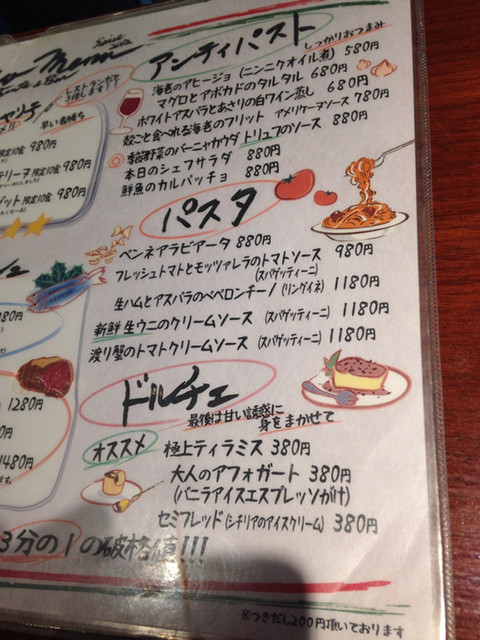 Menu
アンティパスト
しっかりおつまみ
海老のアヒージョ (ニンニクオイル煮) 580円
マグロとアボカドのタルタル 680円
ホワイトアスパラとあさりの白ワイン蒸し 680円
殻ごと食べれる海老のフリット アメリケーヌソース 780円
季節野菜のバーニャカウダ トリュフのソース 880円
本日のシェフサラダ 880円
鮮魚のカルパッチョ 880円
パスタ
ペンネアラビアータ 880円
フレッシュトマトとモッツァレラのトマトソース (スパゲッティーニ) 980円
生ハムとアスパラのペペロンチーノ (リングイネ) 1180円
新鮮 生ウニのクリームソース (スパゲッティーニ) 1180円
渡り蟹のトマトクリームソース (スパゲッティーニ) 1180円
ドルチェ
最後は甘い誘惑に
身をまかせて
オススメ 極上ティラミス 380円
大人のアフォガート 380円
(バニラアイスエスプレッソがけ)
セミフレッド (シチリアのアイスクリーム) 380円
3分の1の破格値!!!
※つきだし200円頂いております
早い者勝ち
限定10食 980円
限定10食 980円
限定10食 980円
1280円
円
1480円